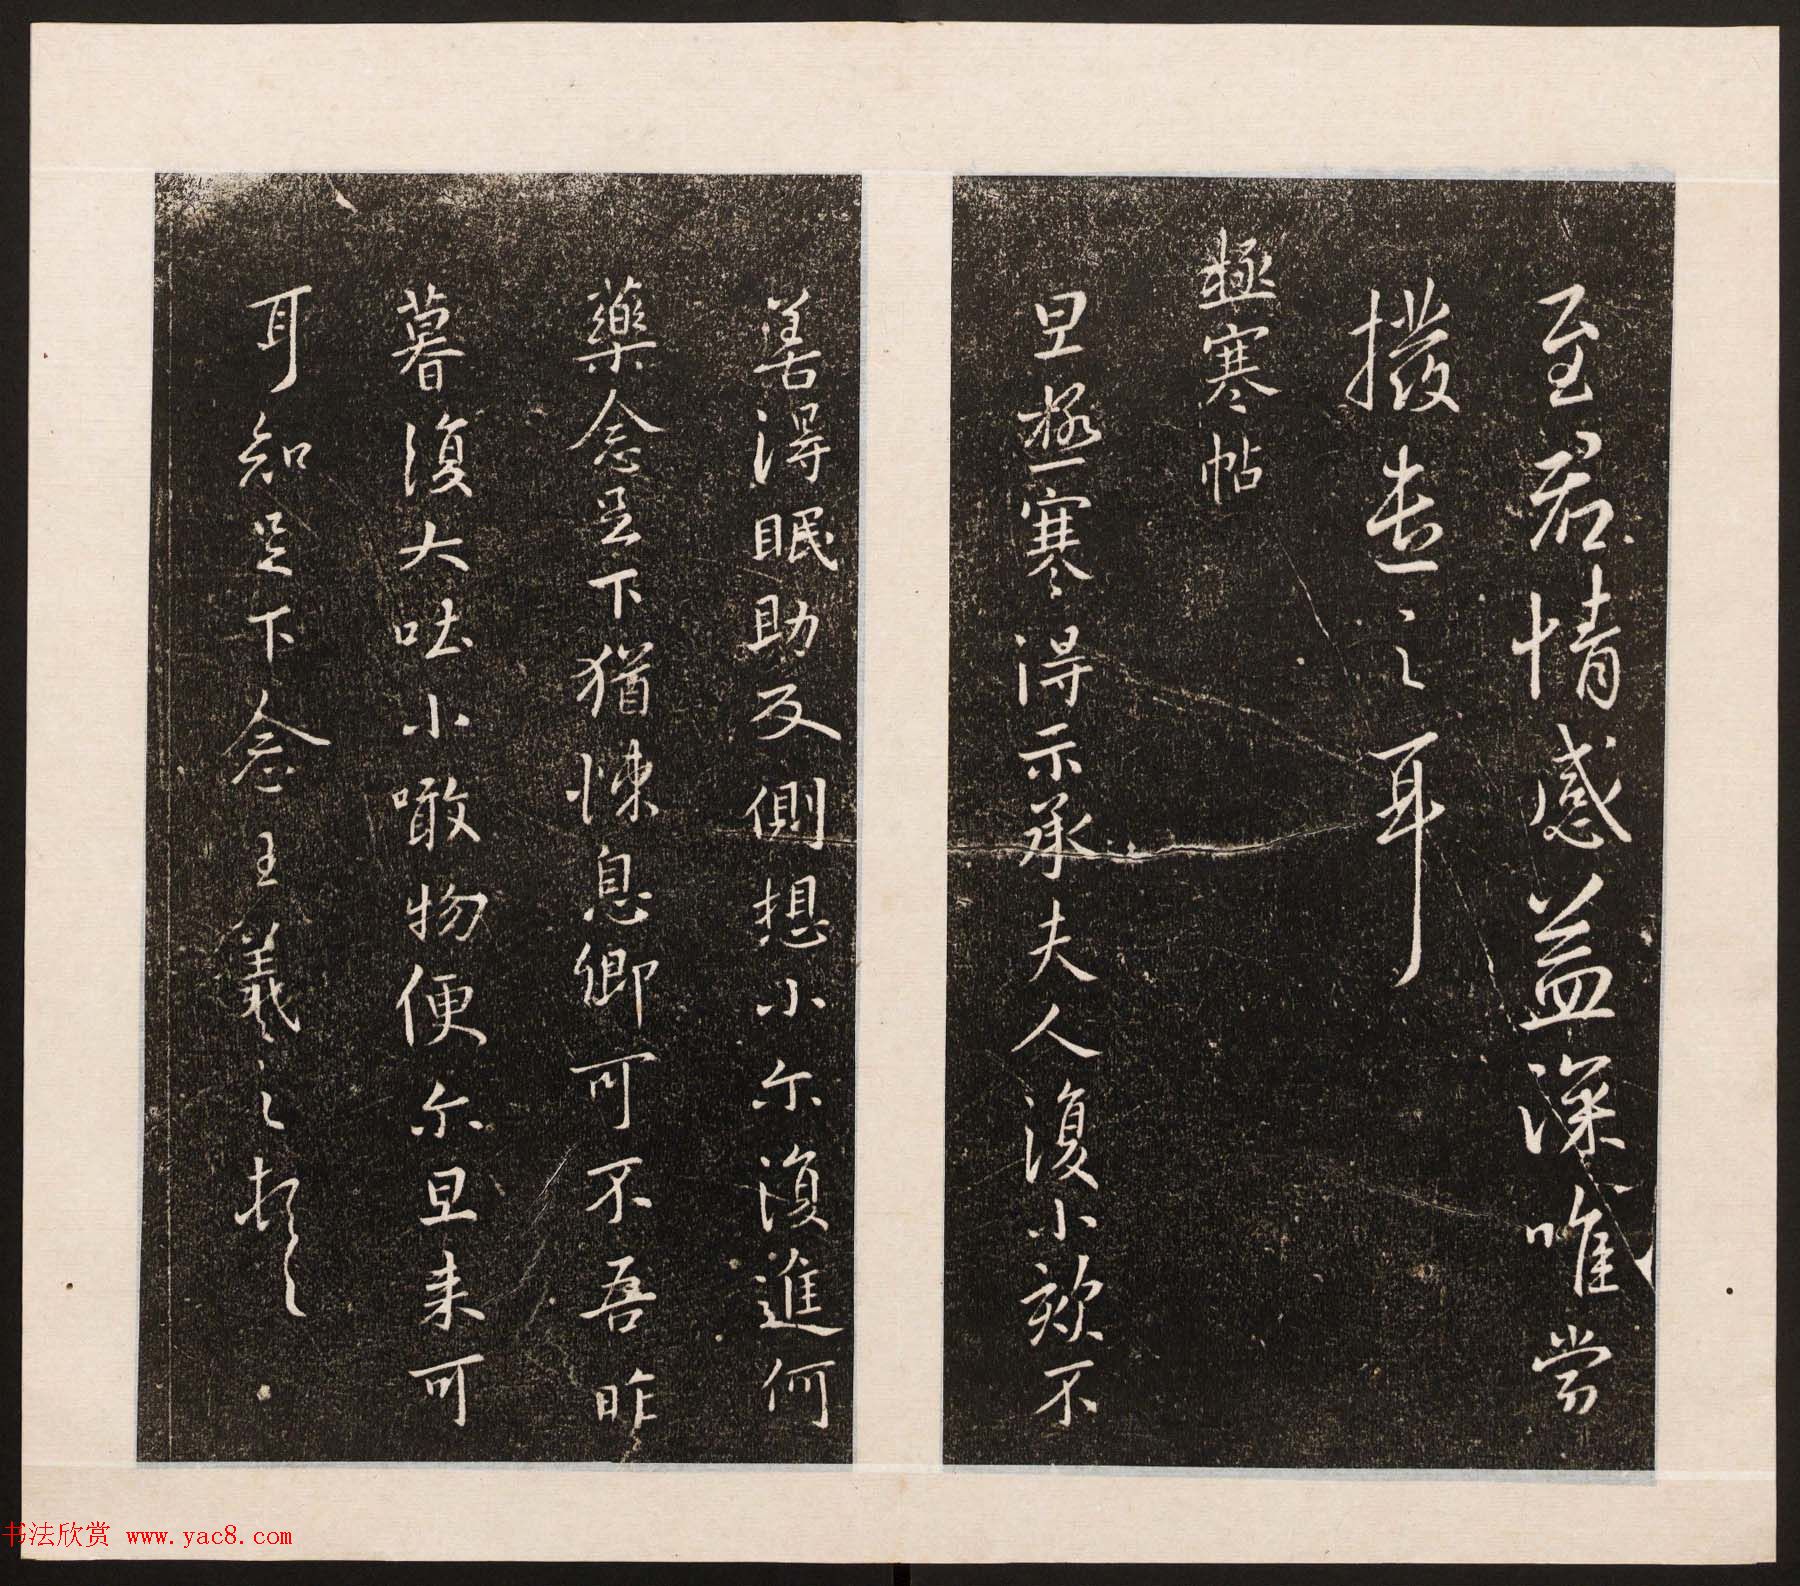 至君情感益深唯當
撥遣之耳
極寒帖
旦極寒得示承夫人復小欬不
善得眠助反側想小尔復進何
藥念足下猶悚息卿可不吾昨
暮復大吐小噉物便尔旦来可
耳知足下念王羲之頓首
书法欣赏 www.yac8.com